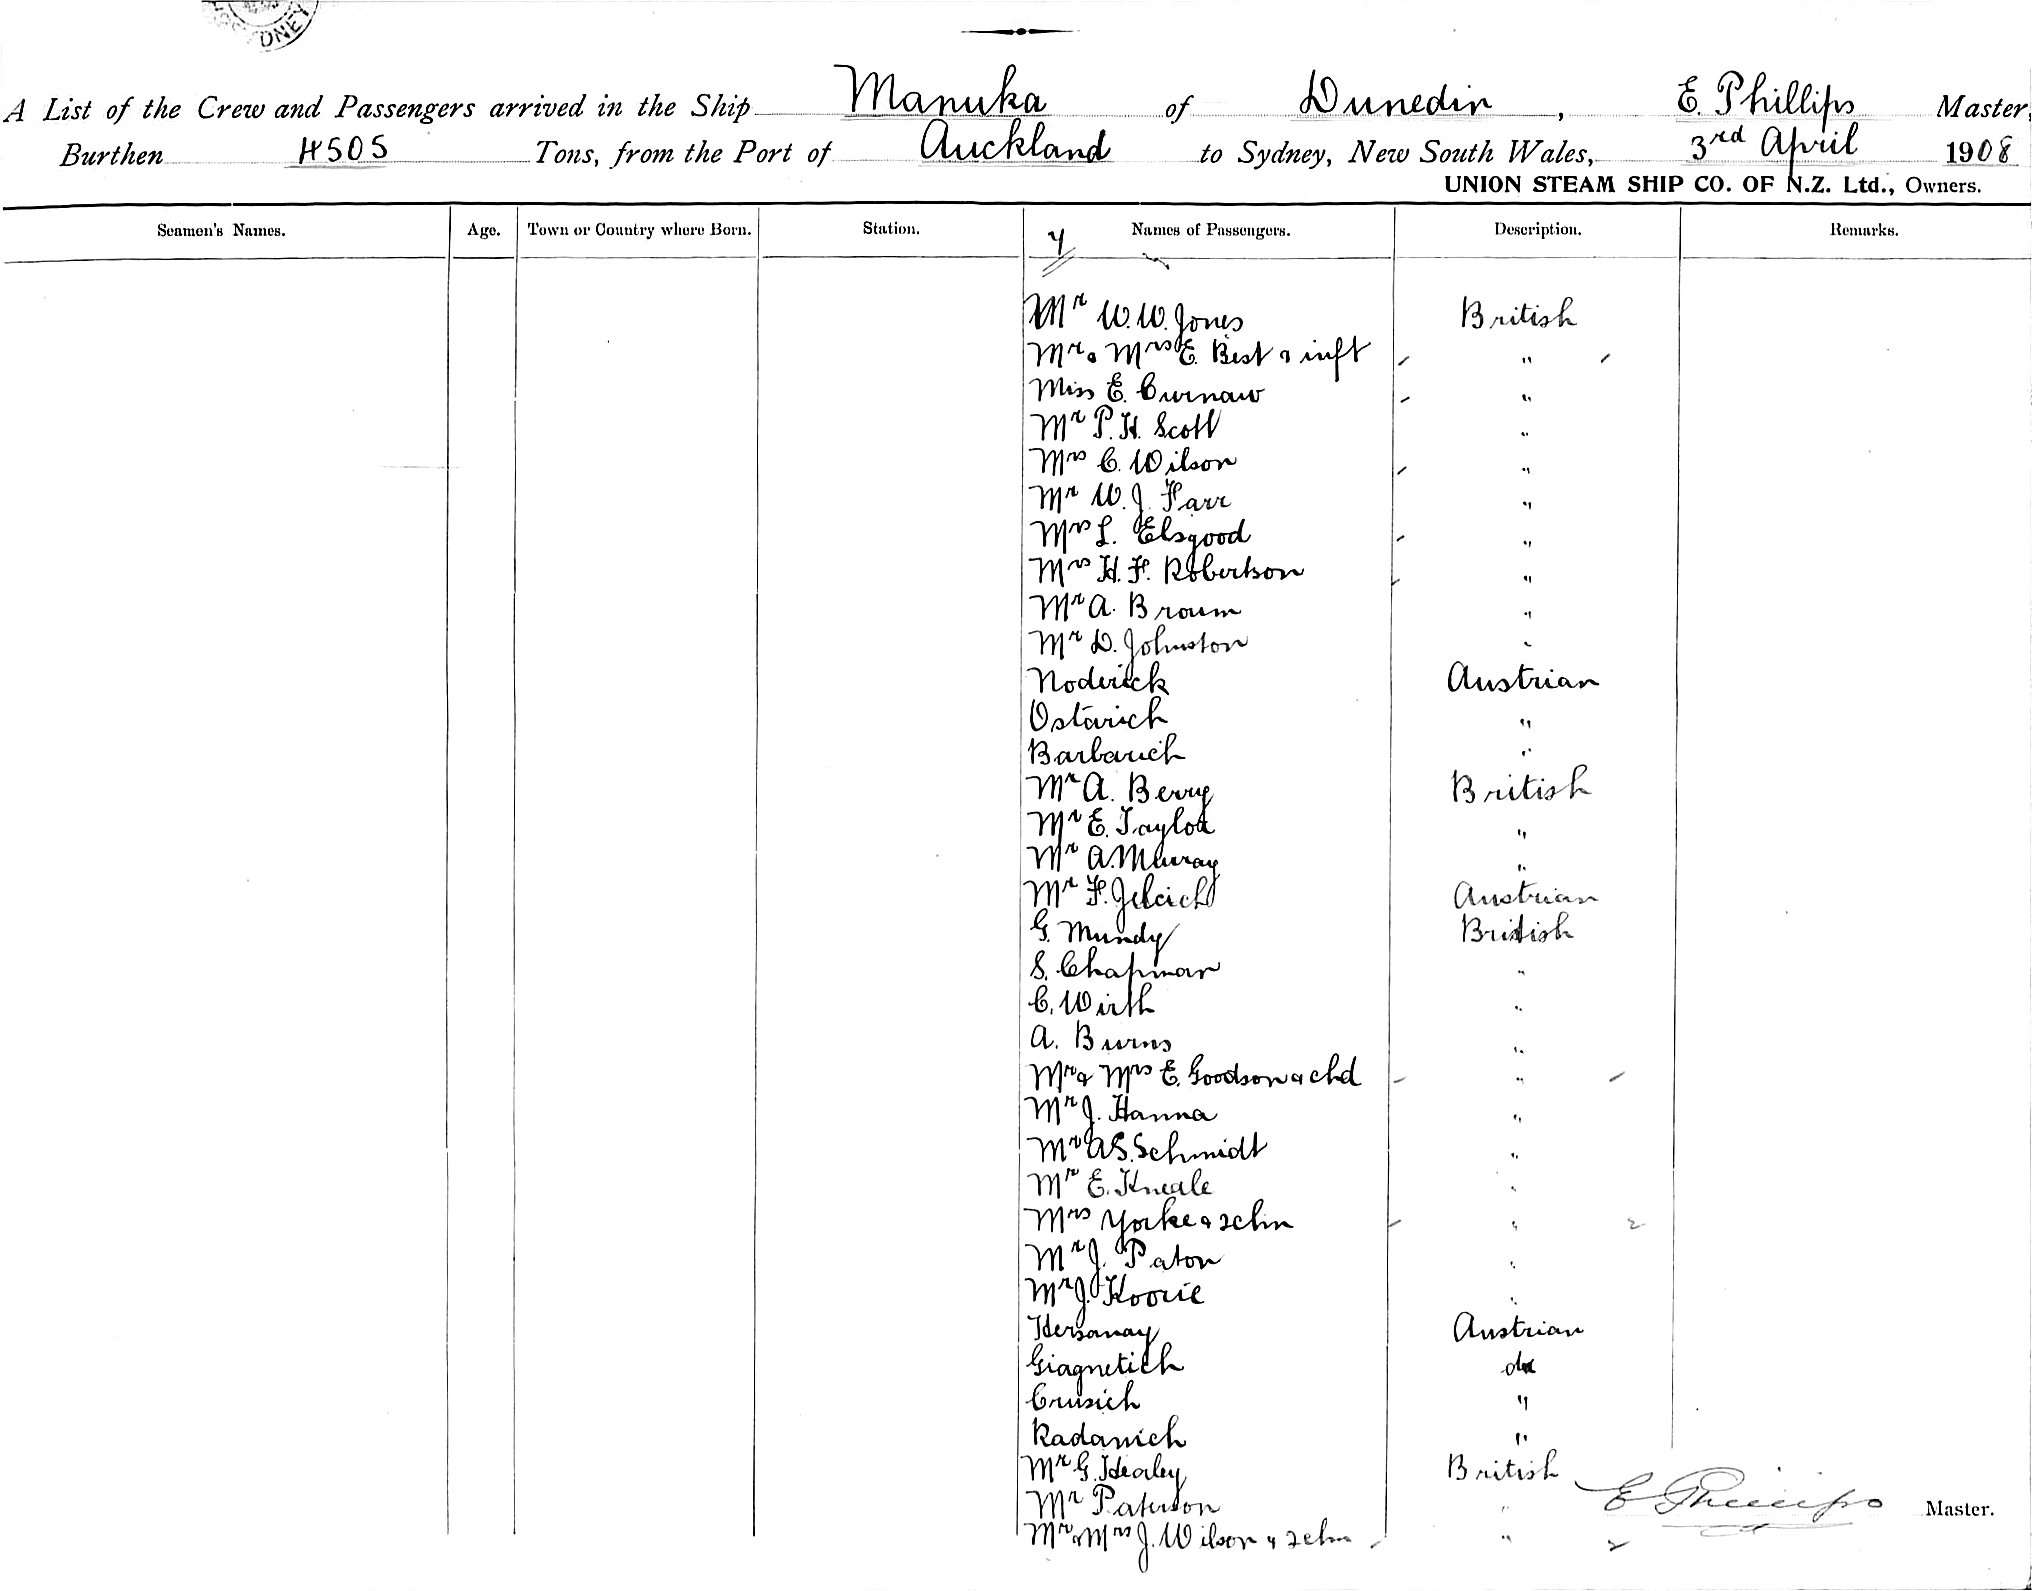 SYDNEY
A List of the Crew and Passengers arrived in the Ship Manuka of Dunedin, E. Phillips Master,
Burthen 4505 Tons, from the Port of Auckland to Sydney, New South Wales, 3rd April 1908
UNION STEAM SHIP CO. OF N.Z. Ltd., Owners.
Seamen's Names. Age. Town or Country where Born. Station. Names of Passengers. Description. Remarks.
Mr W. W. Jones British
Mr & Mrs E. Best & inft "
Miss E. Curnaw "
Mr P. H. Scott "
Mrs C. Wilson "
Mr W. J. Farr "
Mrs L. Elsgood "
Mrs H. F. Robertson "
Mr A. Brown "
Mr D. Johnston "
Noderick Austrian
Ostarich "
Barbarich "
Mr A. Berry British
Mr E. Taylor "
Mr A. Murray "
Mr F. Jelcich Austrian
G. Mundy British
S. Chapman "
C. Wirth "
A. Burns "
Mr & Mrs E. Goodson & chd "
Mr J. Hanna "
Mr A S. Schmidt "
Mr E. Kneale "
Mrs Yorke & 2 chn " 2
Mr J. Paton "
Mr J. Koorie "
Hersanay Austrian
Giagnetich do
Crusich "
Radanich "
Mr G. Healey British
Mr Paterson " E Phillips Master.
Mr & Mrs J. Wilson & 2 chn " 2